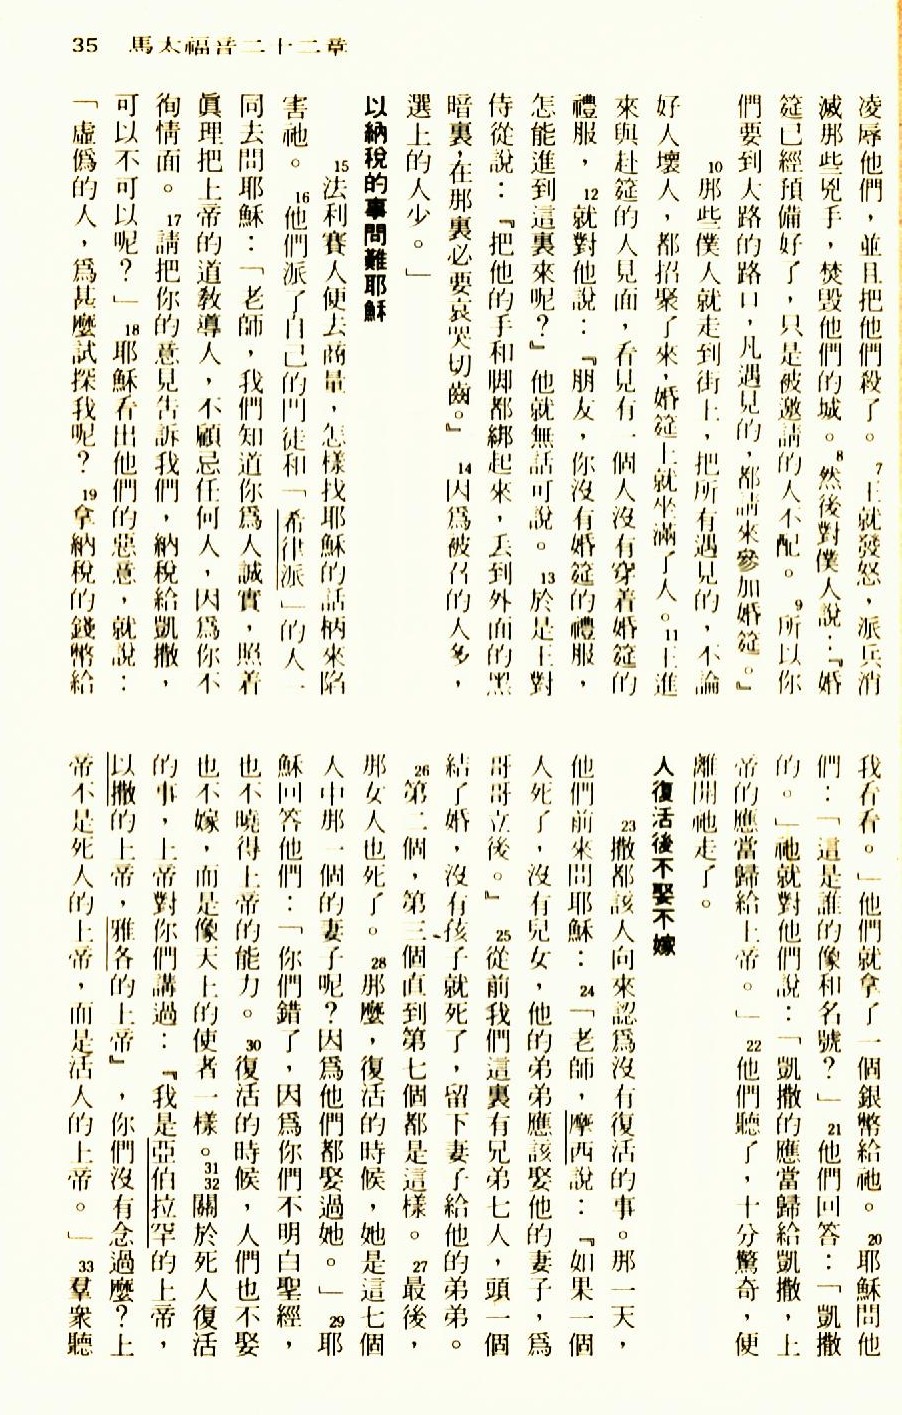 35 馬太福音二十二章
凌辱他們，並且把他們殺了。7王就發怒，派兵消
滅那些兇手，焚毀他們的城。8然後對僕人說：『婚
筵已經預備好了，只是被邀請的人不配。9所以你
們要到大路的路口，凡遇見的，都請來參加婚筵。』
10那些僕人就走到街上，把所有遇見的，不論
好人壞人，都招聚了來，婚筵上就坐滿了人。11王進
來與赴筵的人見面，看見有一個人沒有穿着婚筵的
禮服，12就對他說：『朋友，你沒有婚筵的禮服，
怎能進到這裏來呢？』他就無話可說。13於是王對
侍從說：『把他的手和脚都綁起來，丟到外面的黑
暗裏，在那裏必要哀哭切齒。』14因爲被召的人多，
選上的人少。」
以納稅的事問難耶穌
15法利賽人便去商量，怎樣找耶穌的話柄來陷
害祂。16他們派了自己的門徒和「希律派」的人一
同去問耶穌：「老師，我們知道你爲人誠實，照着
眞理把上帝的道敎導人，不顧忌任何人，因爲你不
徇情面。17請把你的意見告訴我們，納稅給凱撒，
可以不可以呢？」18耶穌看出他們的惡意，就說：
「虛僞的人，爲甚麼試探我呢？19拿納稅的錢幣給
我看看。」他們就拿了一個銀幣給祂。20耶穌問他
們：「這是誰的像和名號？」21他們回答：「凱撒
的。」祂就對他們說：「凱撒的應當歸給凱撒，上
帝的應當歸給上帝。」22他們聽了，十分驚奇，便
離開祂走了。
人復活後不娶不嫁
23撒都該人向來認爲沒有復活的事。那一天，
他們前來問耶穌：24「老師，摩西說：『如果一個
人死了，沒有兒女，他的弟弟應該娶他的妻子，爲
哥哥立後。』25從前我們這裏有兄弟七人，頭一個
結了婚，沒有孩子就死了，留下妻子給他的弟弟。
26第二個，第三個直到第七個都是這樣。27最後，
那女人也死了。28那麼，復活的時候，她是這七個
人中那一個的妻子呢？因爲他們都娶過她。」29耶
穌回答他們：「你們錯了，因爲你們不明白聖經，
也不曉得上帝的能力。30復活的時候，人們也不娶
也不嫁，而是像天上的使者一樣。31 32關於死人復活
的事，上帝對你們講過：『我是亞伯拉罕的上帝，
以撒的上帝，雅各的上帝』，你們沒有念過麼？上
帝不是死人的上帝，而是活人的上帝。」33羣衆聽